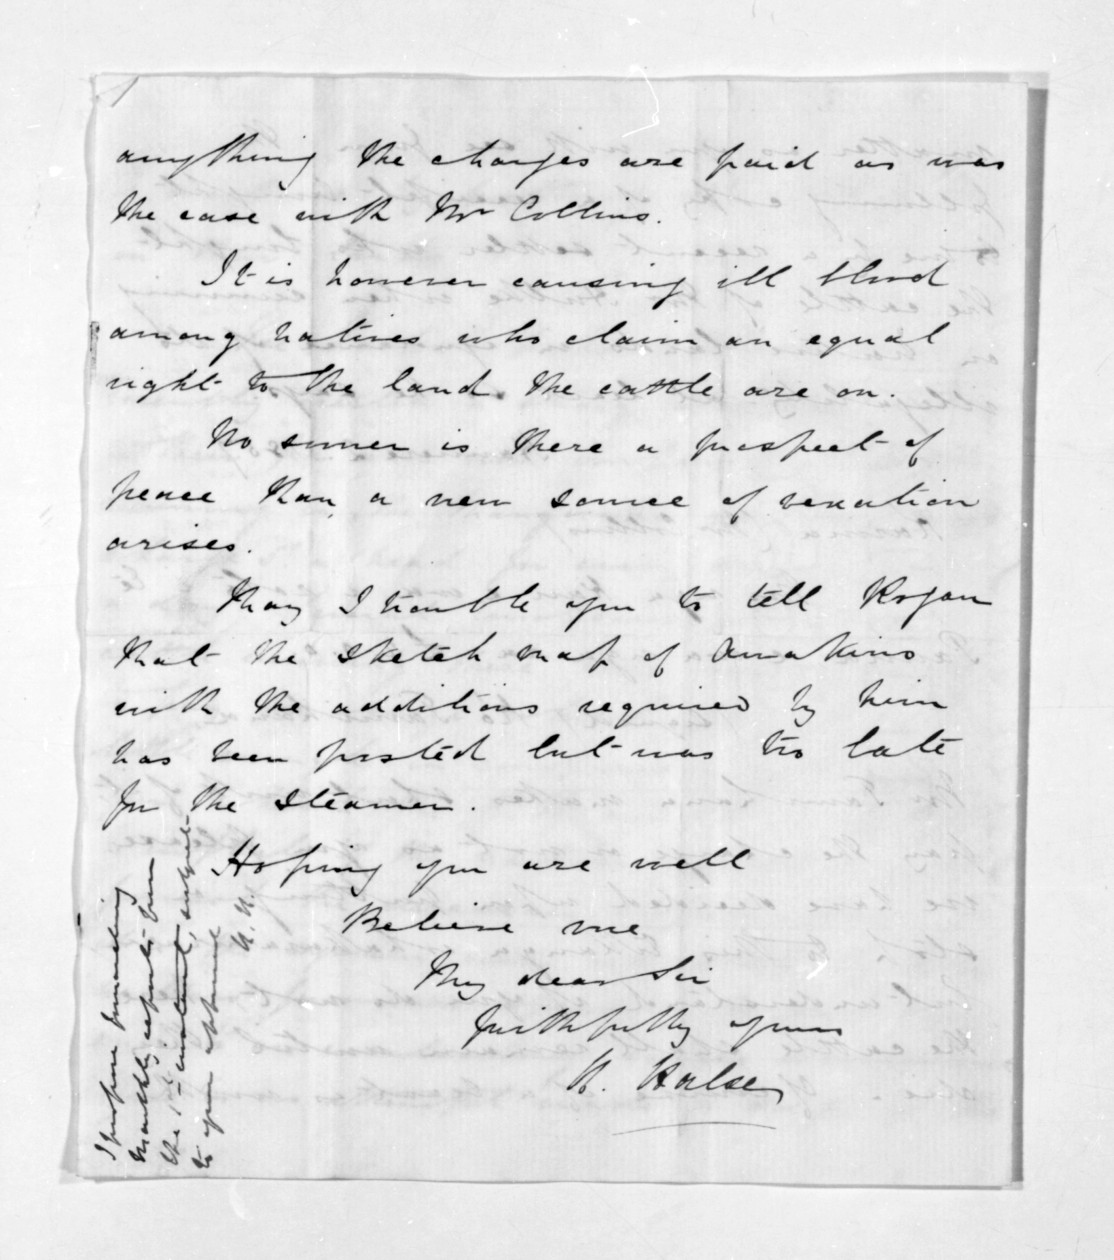 anything the charges are paid as was
the case with Mr Collins.
It is however causing ill blood
among natives who claim an equal
right to the land the cattle are on.
No sooner is there a prospect of
peace than a new source of vexation
arises.
May I trouble you to tell Rogan
that the sketch map of Awakino
with the additions required by him
has been posted but was too late
for the Steamer.
Hoping you are well
Believe me
My dear Sir
faithfully yours
H. Halse
I propose forwarding
Monthly reports from
the 1st instant, subject
to your approval
H.H.